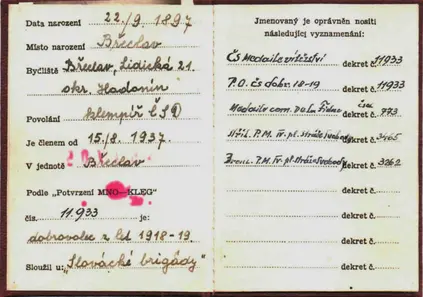 Datum narození 22./9. 1897
Místo narození Břeclav
Bydliště Břeclav, Lidická 21.
okr. Hodonín
Povolání klempíř ČSD
Je členem od 15./8. 1937.
V jednotě Břeclav
Podle „Potvrzení MNO—KLEG“
čís. 11.933 je:
dobrovolec z let 1918-19.
Sloužil u: „Slovácké brigády“
Jmenovaný je oprávněn nositi
následující vyznamenání:
ČS Medaile vítězství dekret č. 11933
P.O. čs dobr. 18-19 dekret č. 11933
Medaile com. dekret č. 773
Stříb. P.M. IV. pl. Stráže Svobody dekret č. 3465
Bronz. P.M. IV. pl. Stráže Svobody dekret č. 3262
dekret č.
dekret č.
dekret č.
dekret č.